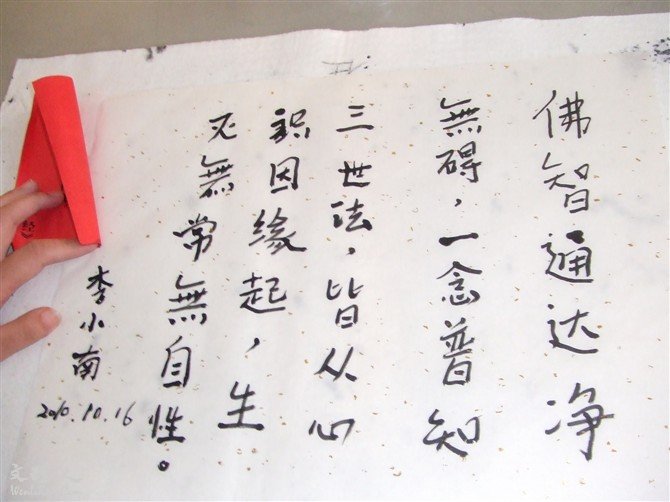 佛智通达净
無碍，一念普知
三世法，皆从心
识因缘起，生
灭無常無自性。
李小南
2010.10.16